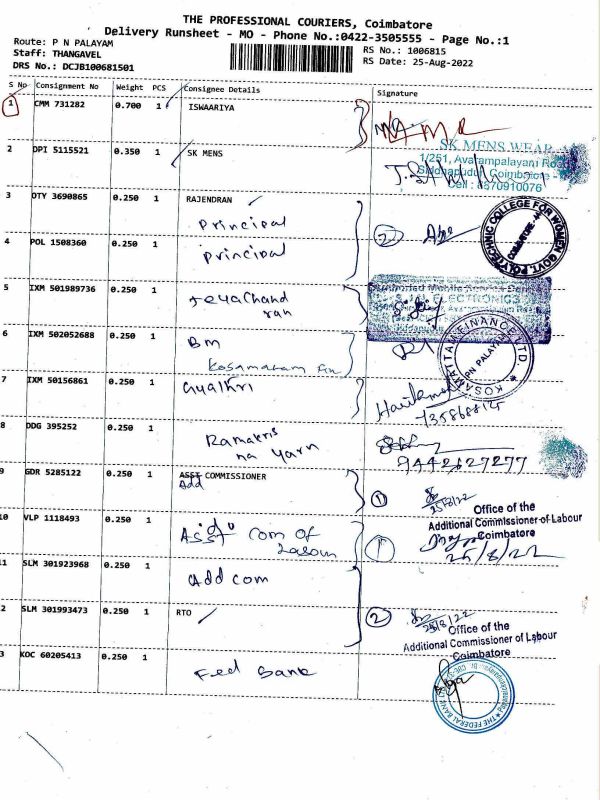 THE PROFESSIONAL COURIERS, Coimbatore
Delivery Runsheet - MO - Phone No.:0422-3505555 - Page No.:1
Route: P N PALAYAM
Staff: THANGAVEL
DRS No.: DCJB100681501
RS No.: 1006815
RS Date: 25-Aug-2022
S No Consignment No Weight PCS Consignee Details Signature
1 CMM 731282 0.700 1 ISWAARIYA
2 DPI 5115521 0.350 1 SK MENS
SK MENS WEAR
1/251, Avarampalayam Road
Siddhapudur, Coimbatore -
Cell : 8870910076
3 OTY 3690865 0.250 1 RAJENDRAN
Principal
4 POL 1508360 0.250 1
Principal
2
POLYTECHNIC COLLEGE FOR WOMEN
COIMBATORE
5 IXM 501989736 0.250 1
Jeyachand
ran
ELECTRONICS
6 IXM 502052688 0.250 1
Bm
Kosamatam Fin
KOSAMATTAM FINANCE LTD.
PN PALAYAM
7 IXM 50156861 0.250 1
8 DDG 395252 0.250 1
Ramakris
na Yarn
9442627277
9 GDR 5285122 0.250 1 ASST COMMISSIONER
Add
1
25/8/22
Office of the
Additional Commissioner of Labour
Coimbatore
10 VLP 1118493 0.250 1
Asst Com of
Labour
1
25/8/22
11 SLM 301923968 0.250 1
Add com
2 SLM 301993473 0.250 1 RTO
2
25/8/22
Office of the
Additional Commissioner of Labour
Coimbatore
3 KOC 60205413 0.250 1
Fed Bank
THE FEDERAL BANK